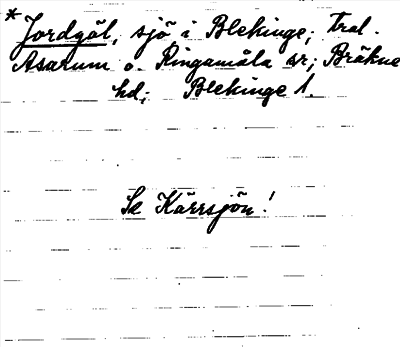 * Jordgöl, sjö i Blekinge; Tral.
Asarum o. Ringamåla sr; Bräkne
hd; Blekinge l.
Se Kärrsjön!